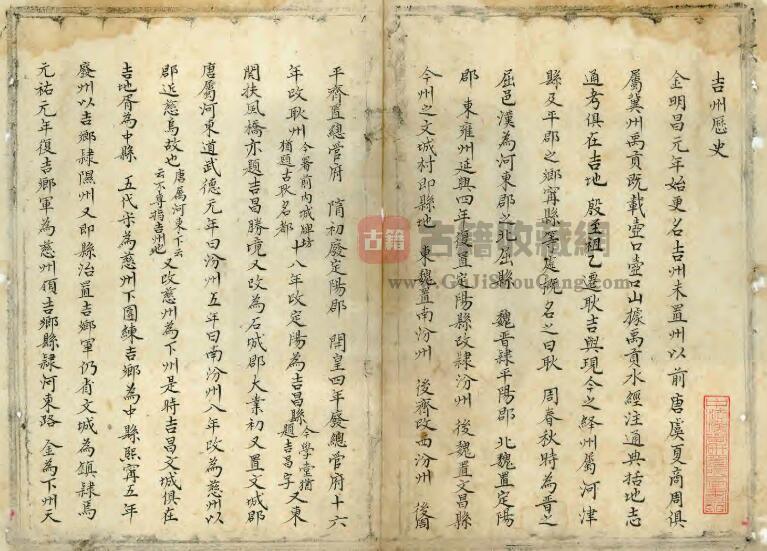 吉州歷史
金明昌元年始更名吉州未置州以前唐虞夏商周俱
屬冀州禹貢既載壺口壺口山據禹貢水經注通典括地志
通考俱在吉地 殷王祖乙遷耿吉與現今之絳州屬河津
縣及平郡之鄉寧縣等處概名之曰耿 周春秋時為晉之
屈邑漢為河東郡之北屈縣 魏晉隸平陽郡 北魏置定陽
郡 東雍州延興四年復置定陽縣改隸汾州 後魏置文昌縣
今州之文城村即縣地 東魏置南汾州 後齊改西汾州 後周
平齊置總管府 隋初廢定陽郡 開皇四年廢總管府十六
年改耿州今署前內城牌坊猶題古耿名都十八年改定陽為吉昌縣今學堂猶題吉昌字又東
関扶風橋亦題吉昌勝境又改為石城郡大業初又置文城郡
唐屬河東道武德元年曰汾州五年曰南汾州八年改為慈州以
郡近慈烏故也唐屬河東下云云不專指吉州也又改慈州為下州是時吉昌文城俱在
吉地胥為中縣 五代宋為慈州下團練吉鄉為中縣熙寧五年
廢州以吉鄉隸隰州又即縣治置吉鄉軍仍省文城為鎮隸焉
元祐元年復吉鄉軍為慈州領吉鄉縣隸河東路 金為下州天
古籍
古籍收藏网
www.GuJiShouCang.com